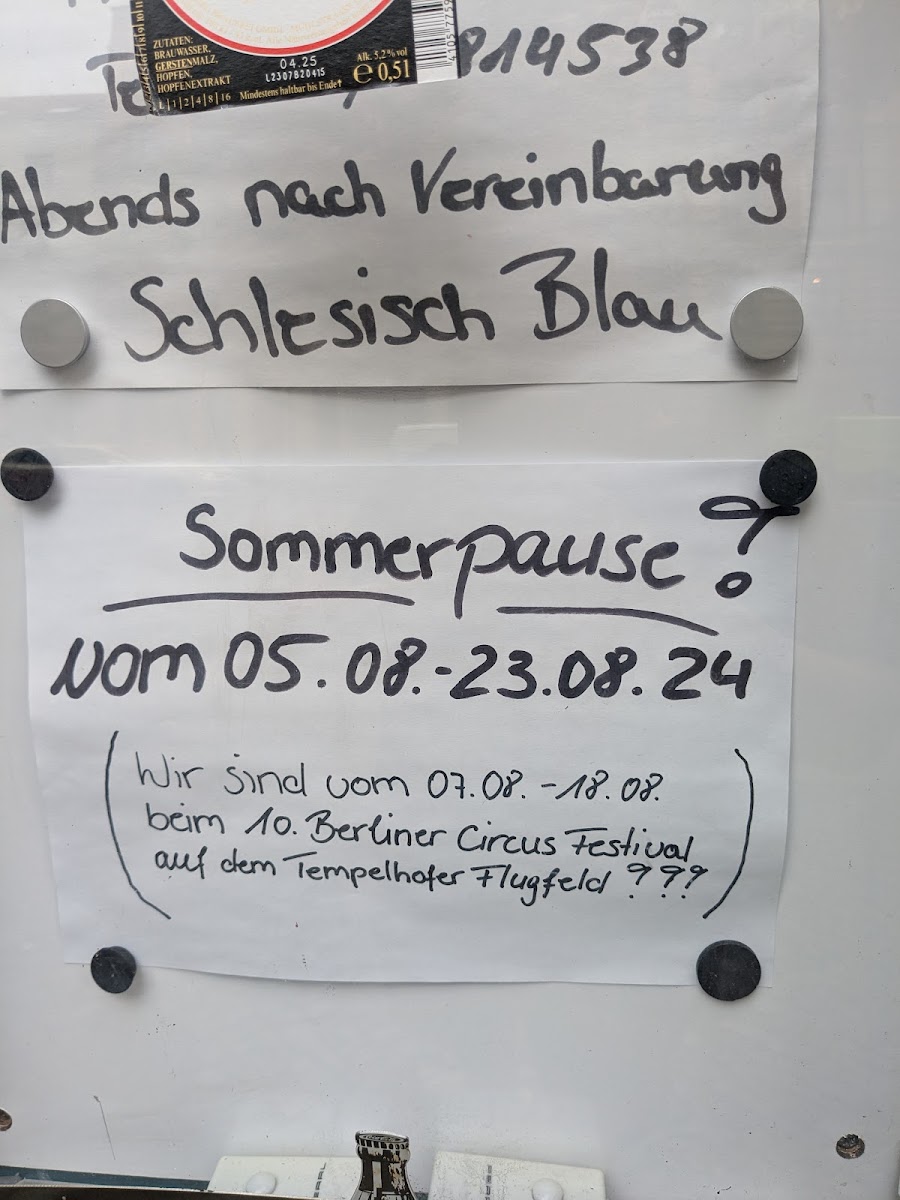 ZUTATEN:
BRAUWASSER,
GERSTENMALZ,
HOPFEN,
HOPFENEXTRAKT
1|2|4|8|16
04.25
L2307820415
Mindestens haltbar bis Ende
Alk. 5,2% vol
e 0,5l
814538
Abends nach Vereinbarung
Schlesisch Blau
Sommerpause ?
vom 05.08.-23.08.24
(Wir sind vom 07.08.-18.08.
beim 10. Berliner Circus Festival
auf dem Tempelhofer Flugfeld ???)